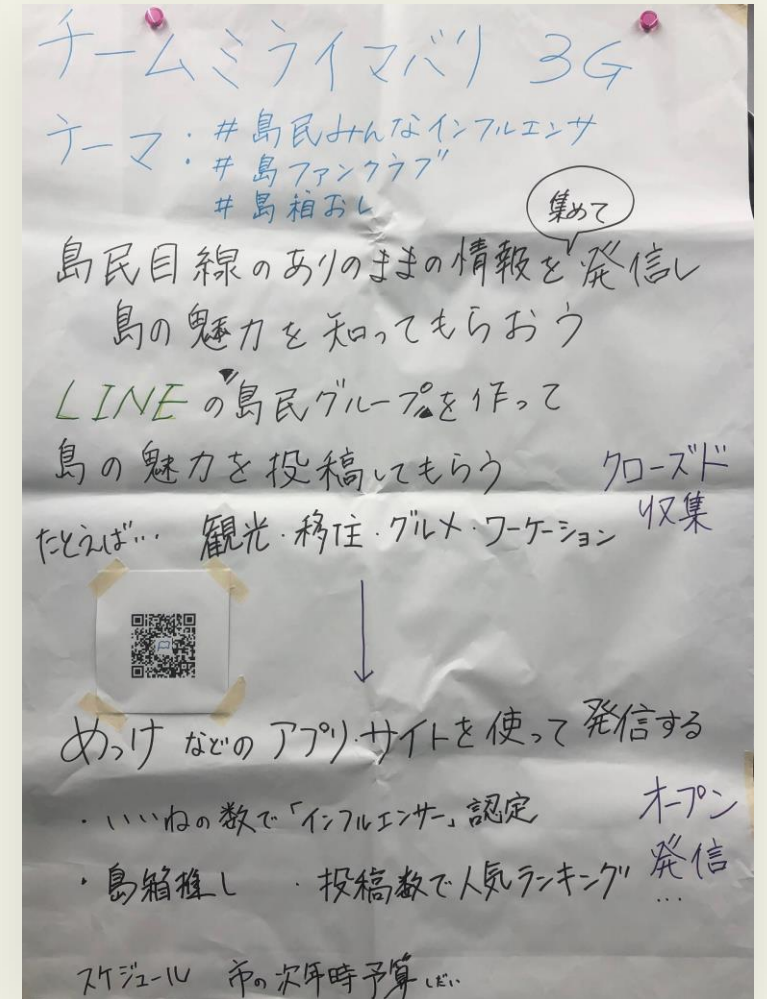 チームミライマバリ 3G
テーマ：#島民みんなインフルエンサ
#島ファンクラブ
#島箱おし
集めて
島民目線のありのままの情報を発信し
島の魅力を知ってもらおう
LINEの〝島民グループ〟を作って
島の魅力を投稿してもらう
クローズド
収集
たとえば… 観光・移住・グルメ・ワーケーション
めっけ などの アプリ・サイトを使って発信する
・いいねの数で「インフルエンサー」認定
オープン
発信
…
・島箱推し ・投稿数で人気ランキング
スケジュール 市の次年時予算しだい